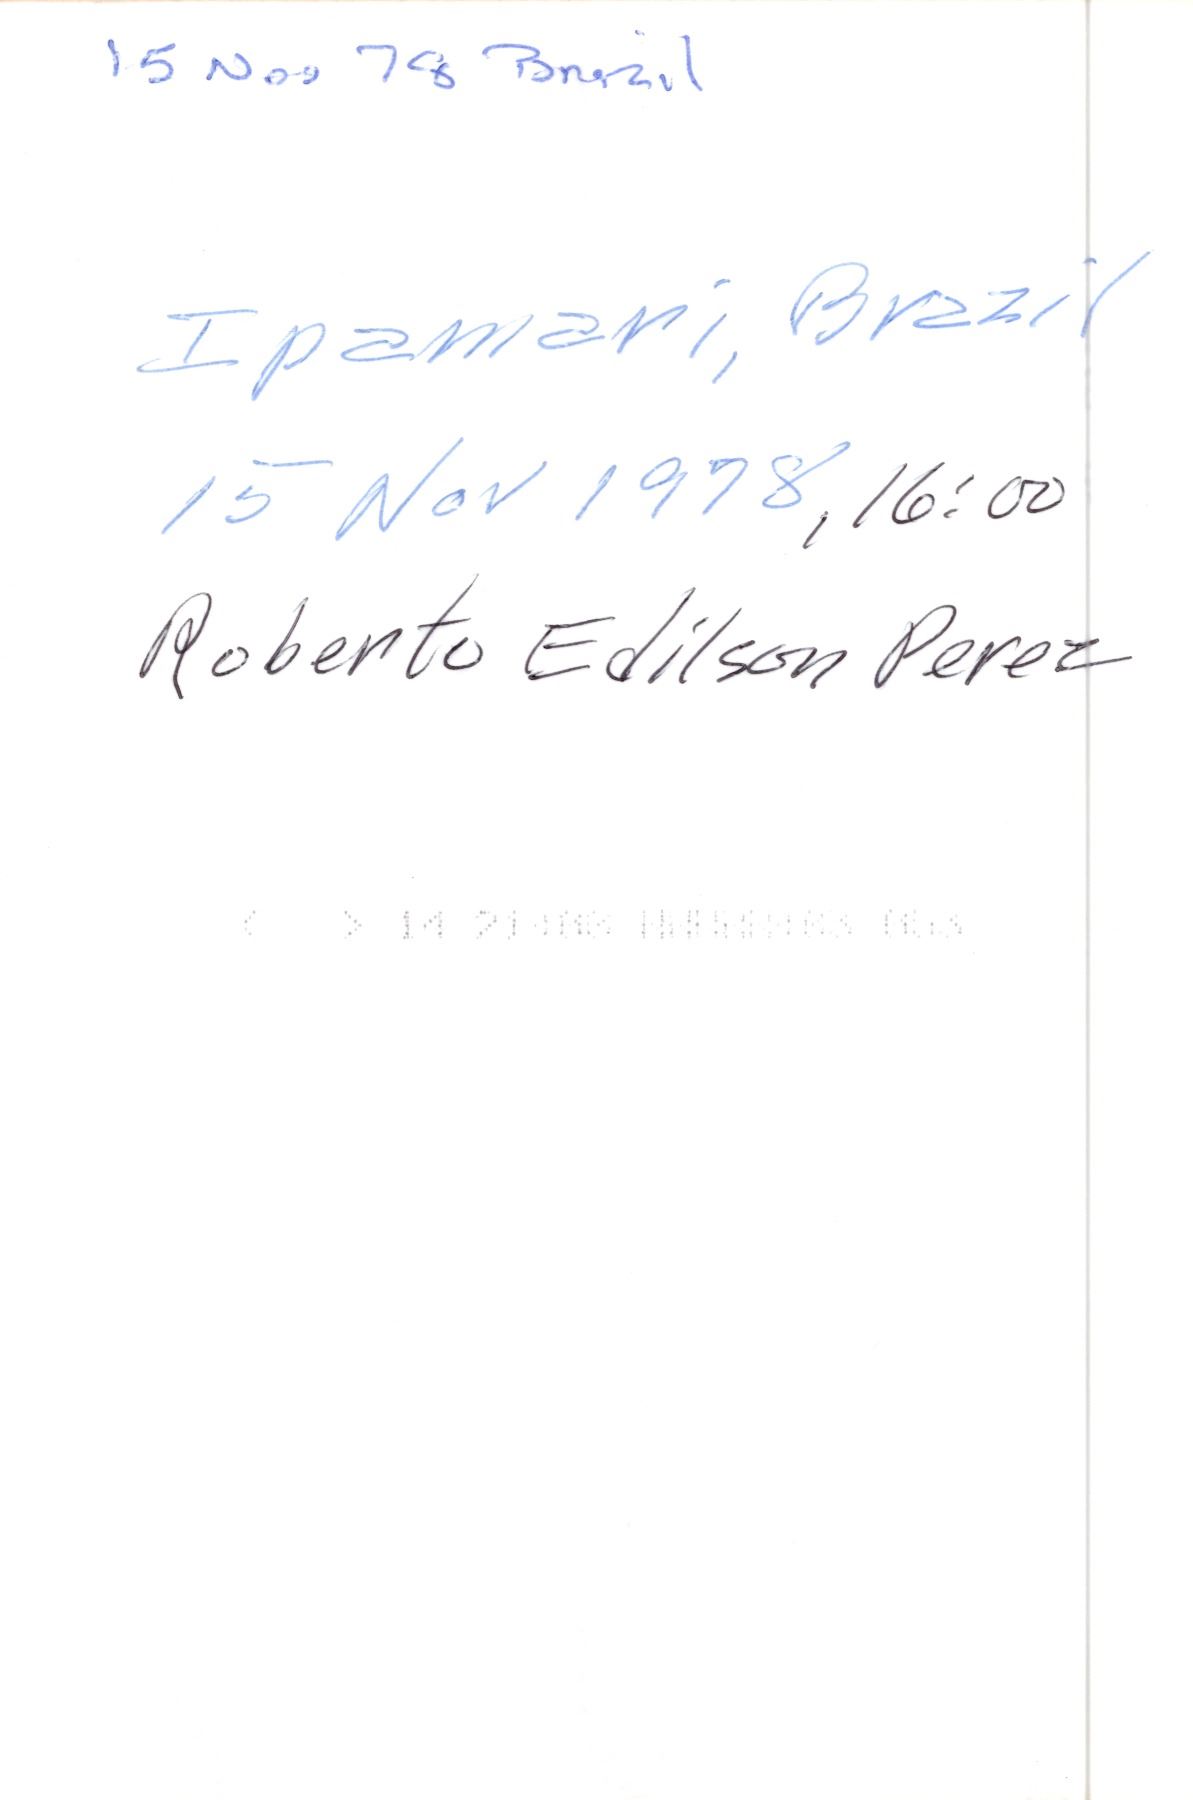 15 Nov 78 Brazil
Ipamari, Brazil
15 Nov 1978, 16:00
Roberto Edilson Perez
< > 14